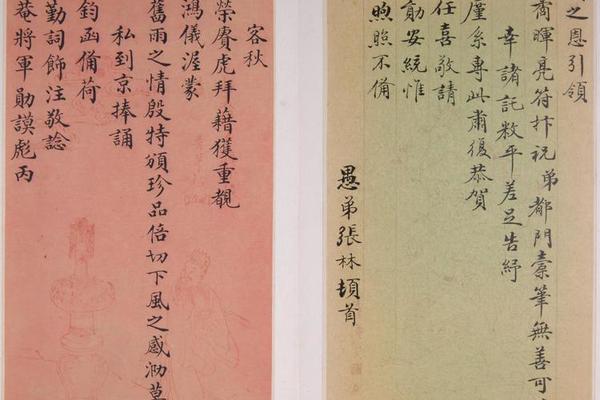 之恩引領
矞暉亮符抃祝弟都門橐筆無善可
幸諸託敉平差足告紓
廑系專此肅復恭賀
任喜敬請
勛安統惟
煦照不備
愚弟張林頓首
客秋
榮賡虎拜藉獲重覯
鴻儀渥蒙
舊雨之情殷特頒珍品倍切下風之感泐
私到京捧誦
鈞函備荷
勤詞飾注敬諗
菴將軍勛謨彪丙